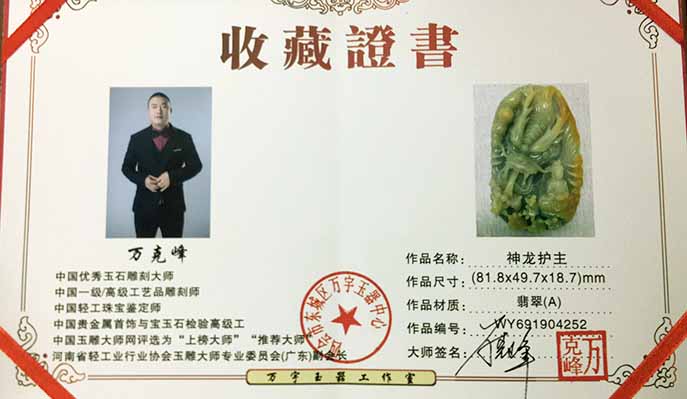 收藏證書
万克峰
中国优秀玉石雕刻大师
中国一级/高级工艺品雕刻师
中国轻工珠宝鉴定师
中国贵金属首饰与宝玉石检验高级工
中国玉雕大师网评选为“上榜大师”“推荐大师”
河南省轻工业行业协会玉雕大师专业委员会(广东)副会长
作品名称: 神龙护主
作品尺寸: (81.8x49.7x18.7)mm
作品材质: 翡翠(A)
作品编号: WY691904252
大师签名:
万克峰
万宇玉器工作室